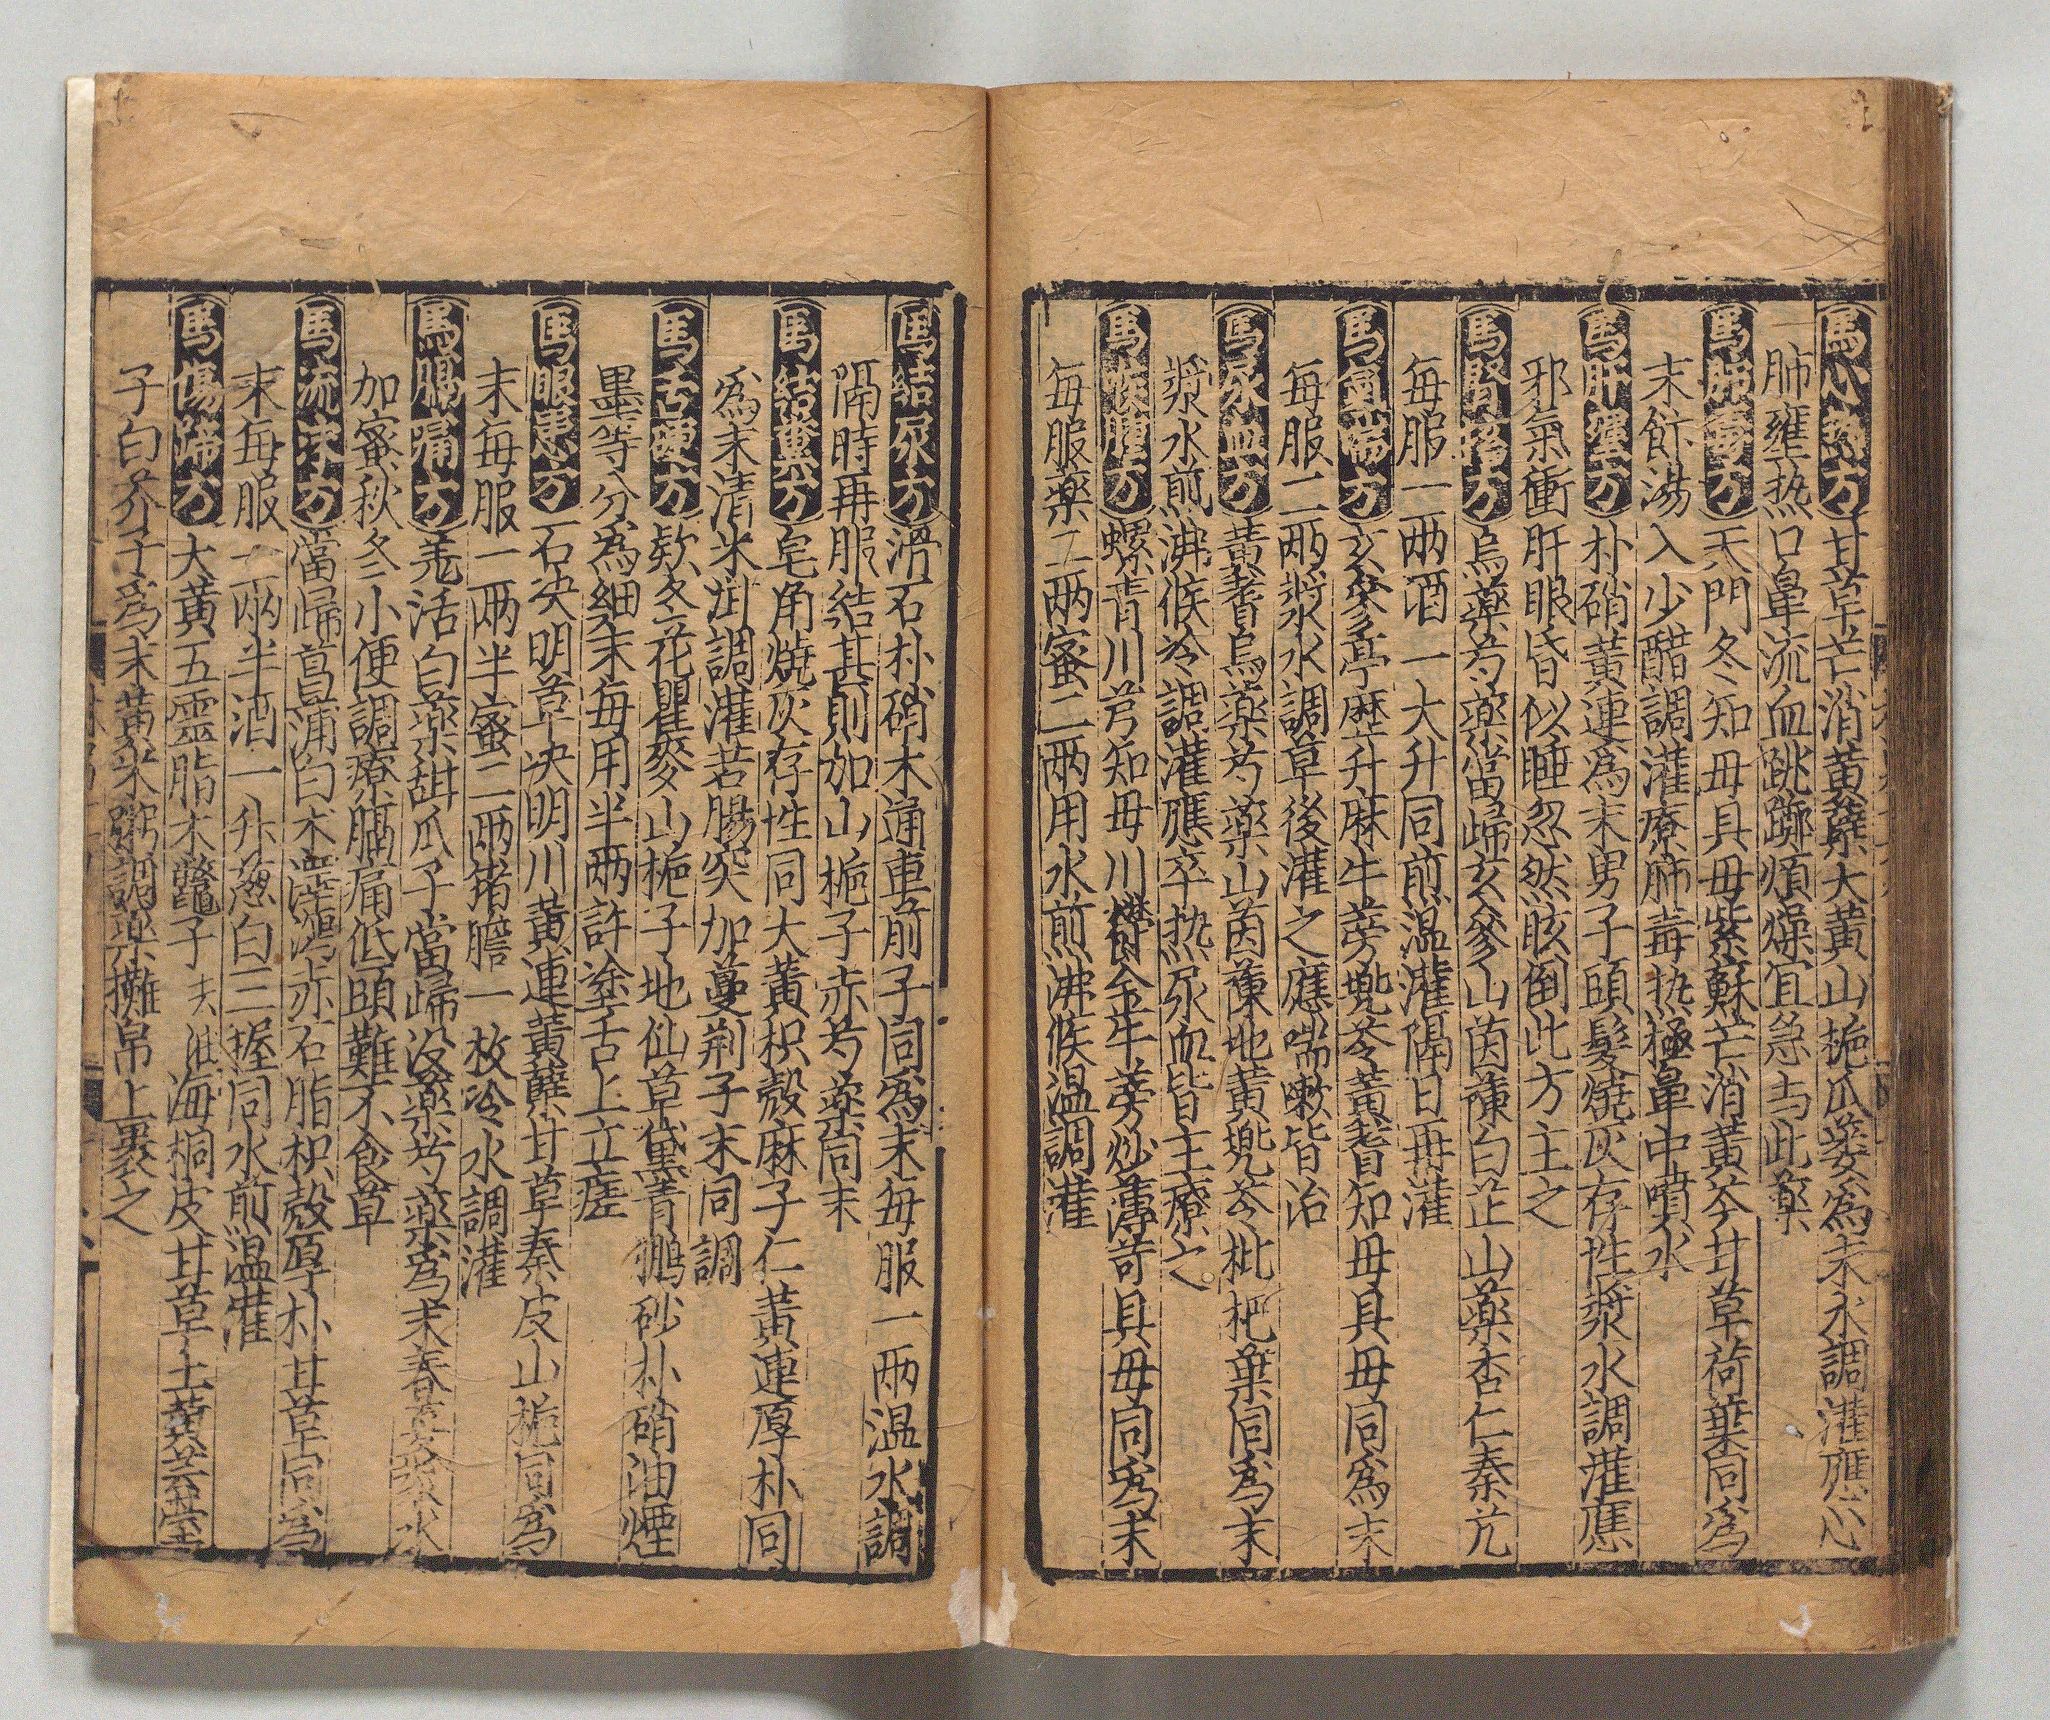 馬心熱方 甘草芒消黄蘗大黄山梔瓜蔞為末水調灌應心
肺壅热口鼻流血跳躑煩燥宜急与此藥
馬肺毒方 天門冬知母具母紫蘇芒消黄芩甘草荷葉同為
末飰湯入少醋調灌療肺毒热極鼻中噴水
馬肝壅方 朴硝黄連為末男子頭髮燒灰存性漿水調灌應
邪氣衝肝眼昏似睡忽然眩倒此方主之
馬腎搐方 烏藥芍藥當歸玄參山茵蔯白芷山藥杏仁秦艽
每服一兩酒一大升同煎温灌隔日再灌
馬氣喘方 玄參亭歷升麻牛蒡兠苓黄耆知母具母同為末
每服二兩漿水調草後灌之應喘嗽皆治
馬尿血方 黄耆烏藥芍藥山茵蔯地黄兠苓枇杷葉同為末
漿水煎沸候冷調灌應卒热尿血皆主療之
馬喉腫方 螺青川芎知母川欝金牛蒡炒薄荷具母同為末
每服藥二兩蜜二兩用水煎沸候温調灌
馬結尿方 滑石朴硝木通車前子同為末每服一兩温水調
隔時再服結甚則加山梔子赤芍藥同末
馬結糞方 皂角燒灰存性同大黄枳殼麻子仁黄連厚朴同
為末清米泔調灌若腸突加蔓荆子末同調
馬舌硬方 欵冬花瞿麥山梔子地仙草黛青鵬砂朴硝油煙
墨等分為細末每用半兩許塗舌上立瘥
馬眼患方 石决明草决明川黄連黄蘗甘草秦皮山梔同為
末每服一兩半蜜二兩猪膽一枚冷水調灌
馬膈痛方 羗活白藥甜瓜子當歸没藥芍藥為末春夏漿水
加蜜秋冬小便調療膈痛低頭難不食草
馬流沫方 當歸菖蒲白木澤瀉赤石脂枳殼厚朴甘草同為
末每服一兩半酒一升葱白三握同水煎温灌
馬傷蹄方 大黄五靈脂木鱉子去油海桐皮甘草土黄芸薹
子白芥子為末黄米粥調藥攤帛上裹之